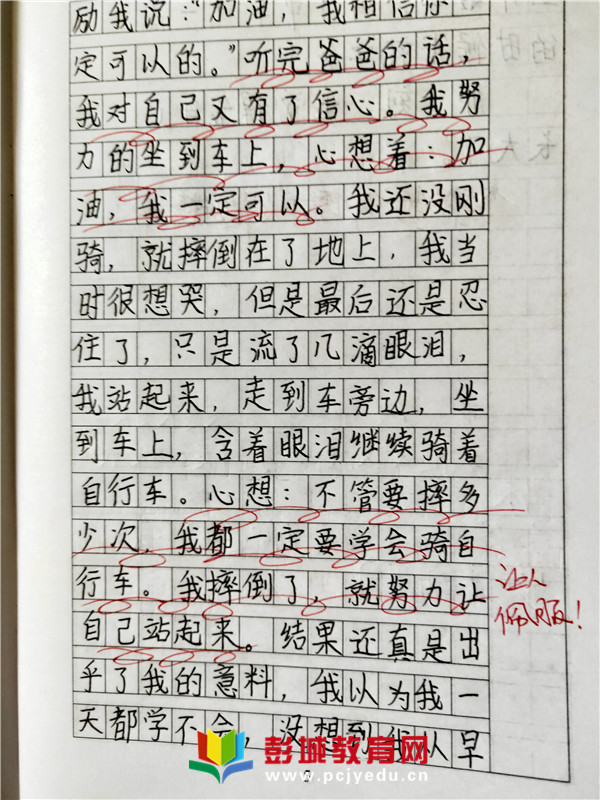 励我说：“加油，我相信你
定可以的。”听完爸爸的话，
我对自己又有了信心。我努
力的坐到车上，心想着：加
油，我一定可以。我还没刚
骑，就摔倒在了地上，我当
时很想哭，但是最后还是忍
住了，只是流了几滴眼泪，
我站起来，走到车旁边，坐
到车上，含着眼泪继续骑着
自行车。心想：不管要摔多
少次，我都一定要学会骑自
行车。我摔倒了，就努力让
自己站起来。结果还真是出
乎了我的意料，我以为我一
天都学不会，没想到我从早
让人
佩服！
彭城教育网
www.pcjyedu.cn
的时候
长大